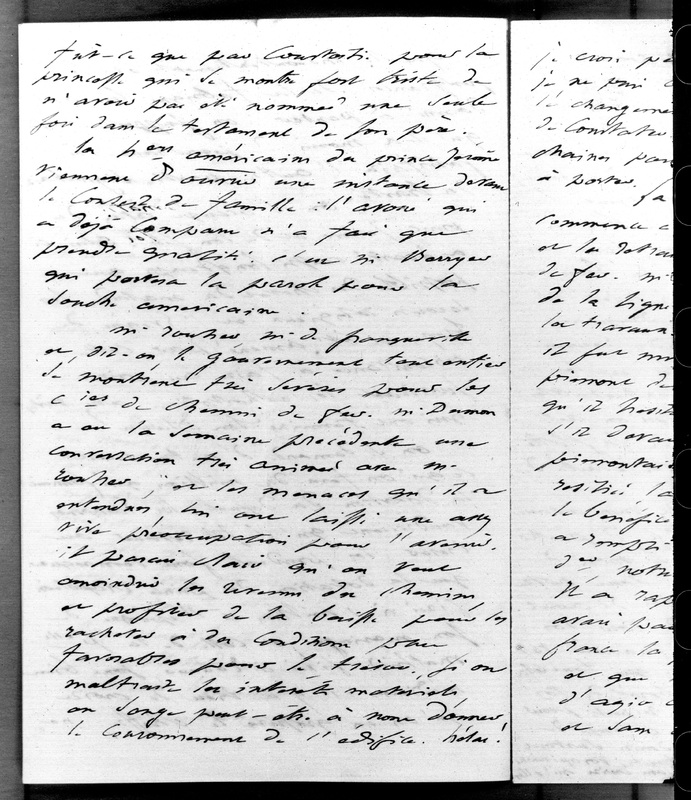 fût-ce que par courtoisie pour la
princesse qui se montre fort triste de
n'avoir pas été nommée une seule
fois dans le testament de son père.
la Don américaine du prince Jérôme
viennent d'ouvrir une instance devant
le Conseil de famille : l'avoué qui
a déjà comparu n'a fait que
prendre qualité. c'est mr Berryer
qui portera la parole pour la
souche américaine.
mr rouher, mr de franqueville
et, dit-on le gouvernement tout entier
se montrent très sévères pour les
cies de chemin de fer. mr Dumon
a eu la semaine précédente une
conversation très animée avec mr
rouher ; et les menaces qu'il a
entendues lui ont laissé une assez
vive préoccupation pour l'avenir.
il parait clair qu'on veut
amoindrir les revenus des chemins
et profiter de la baisse pour les
racheter à des conditions plus
favorables pour le trésor. si on
maltraite les intérêts matériels
on songe peut-être à nous donner
le couronnement de l'édifice. hélas!
je crois
je ne puis
le changeme
de Constater
chaines
à porter.
commence
et la
de fer. mr
de la ligne
les travaux
il fut
piemont de
qu'il hésit
s'il devait
piemontais
résilié, la
le bénéfice
a
des notre
Il a rap
avait
france la
et que
d'agir
et sans